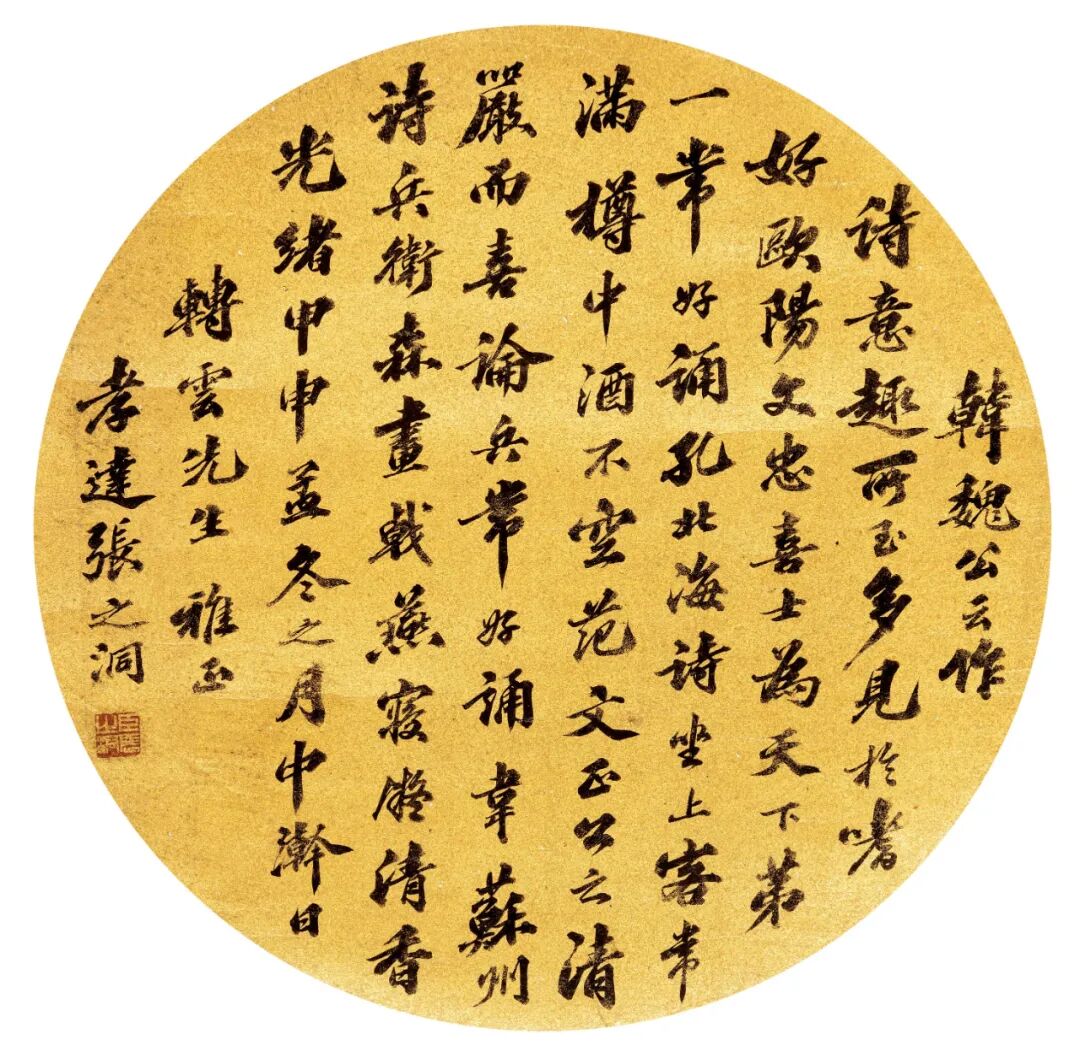 韓魏公云作
詩意趣所至多見於嗜
好歐陽文忠喜士為天下第
一常好誦孔北海詩坐上客常
滿樽中酒不空范文正公云清
嚴而喜論兵常好誦韋蘇州
詩兵衛森畫戟燕寢凝清香
光緒甲申孟冬之月中澣日
轉雲先生 雅正
孝達張之洞
臣張之洞